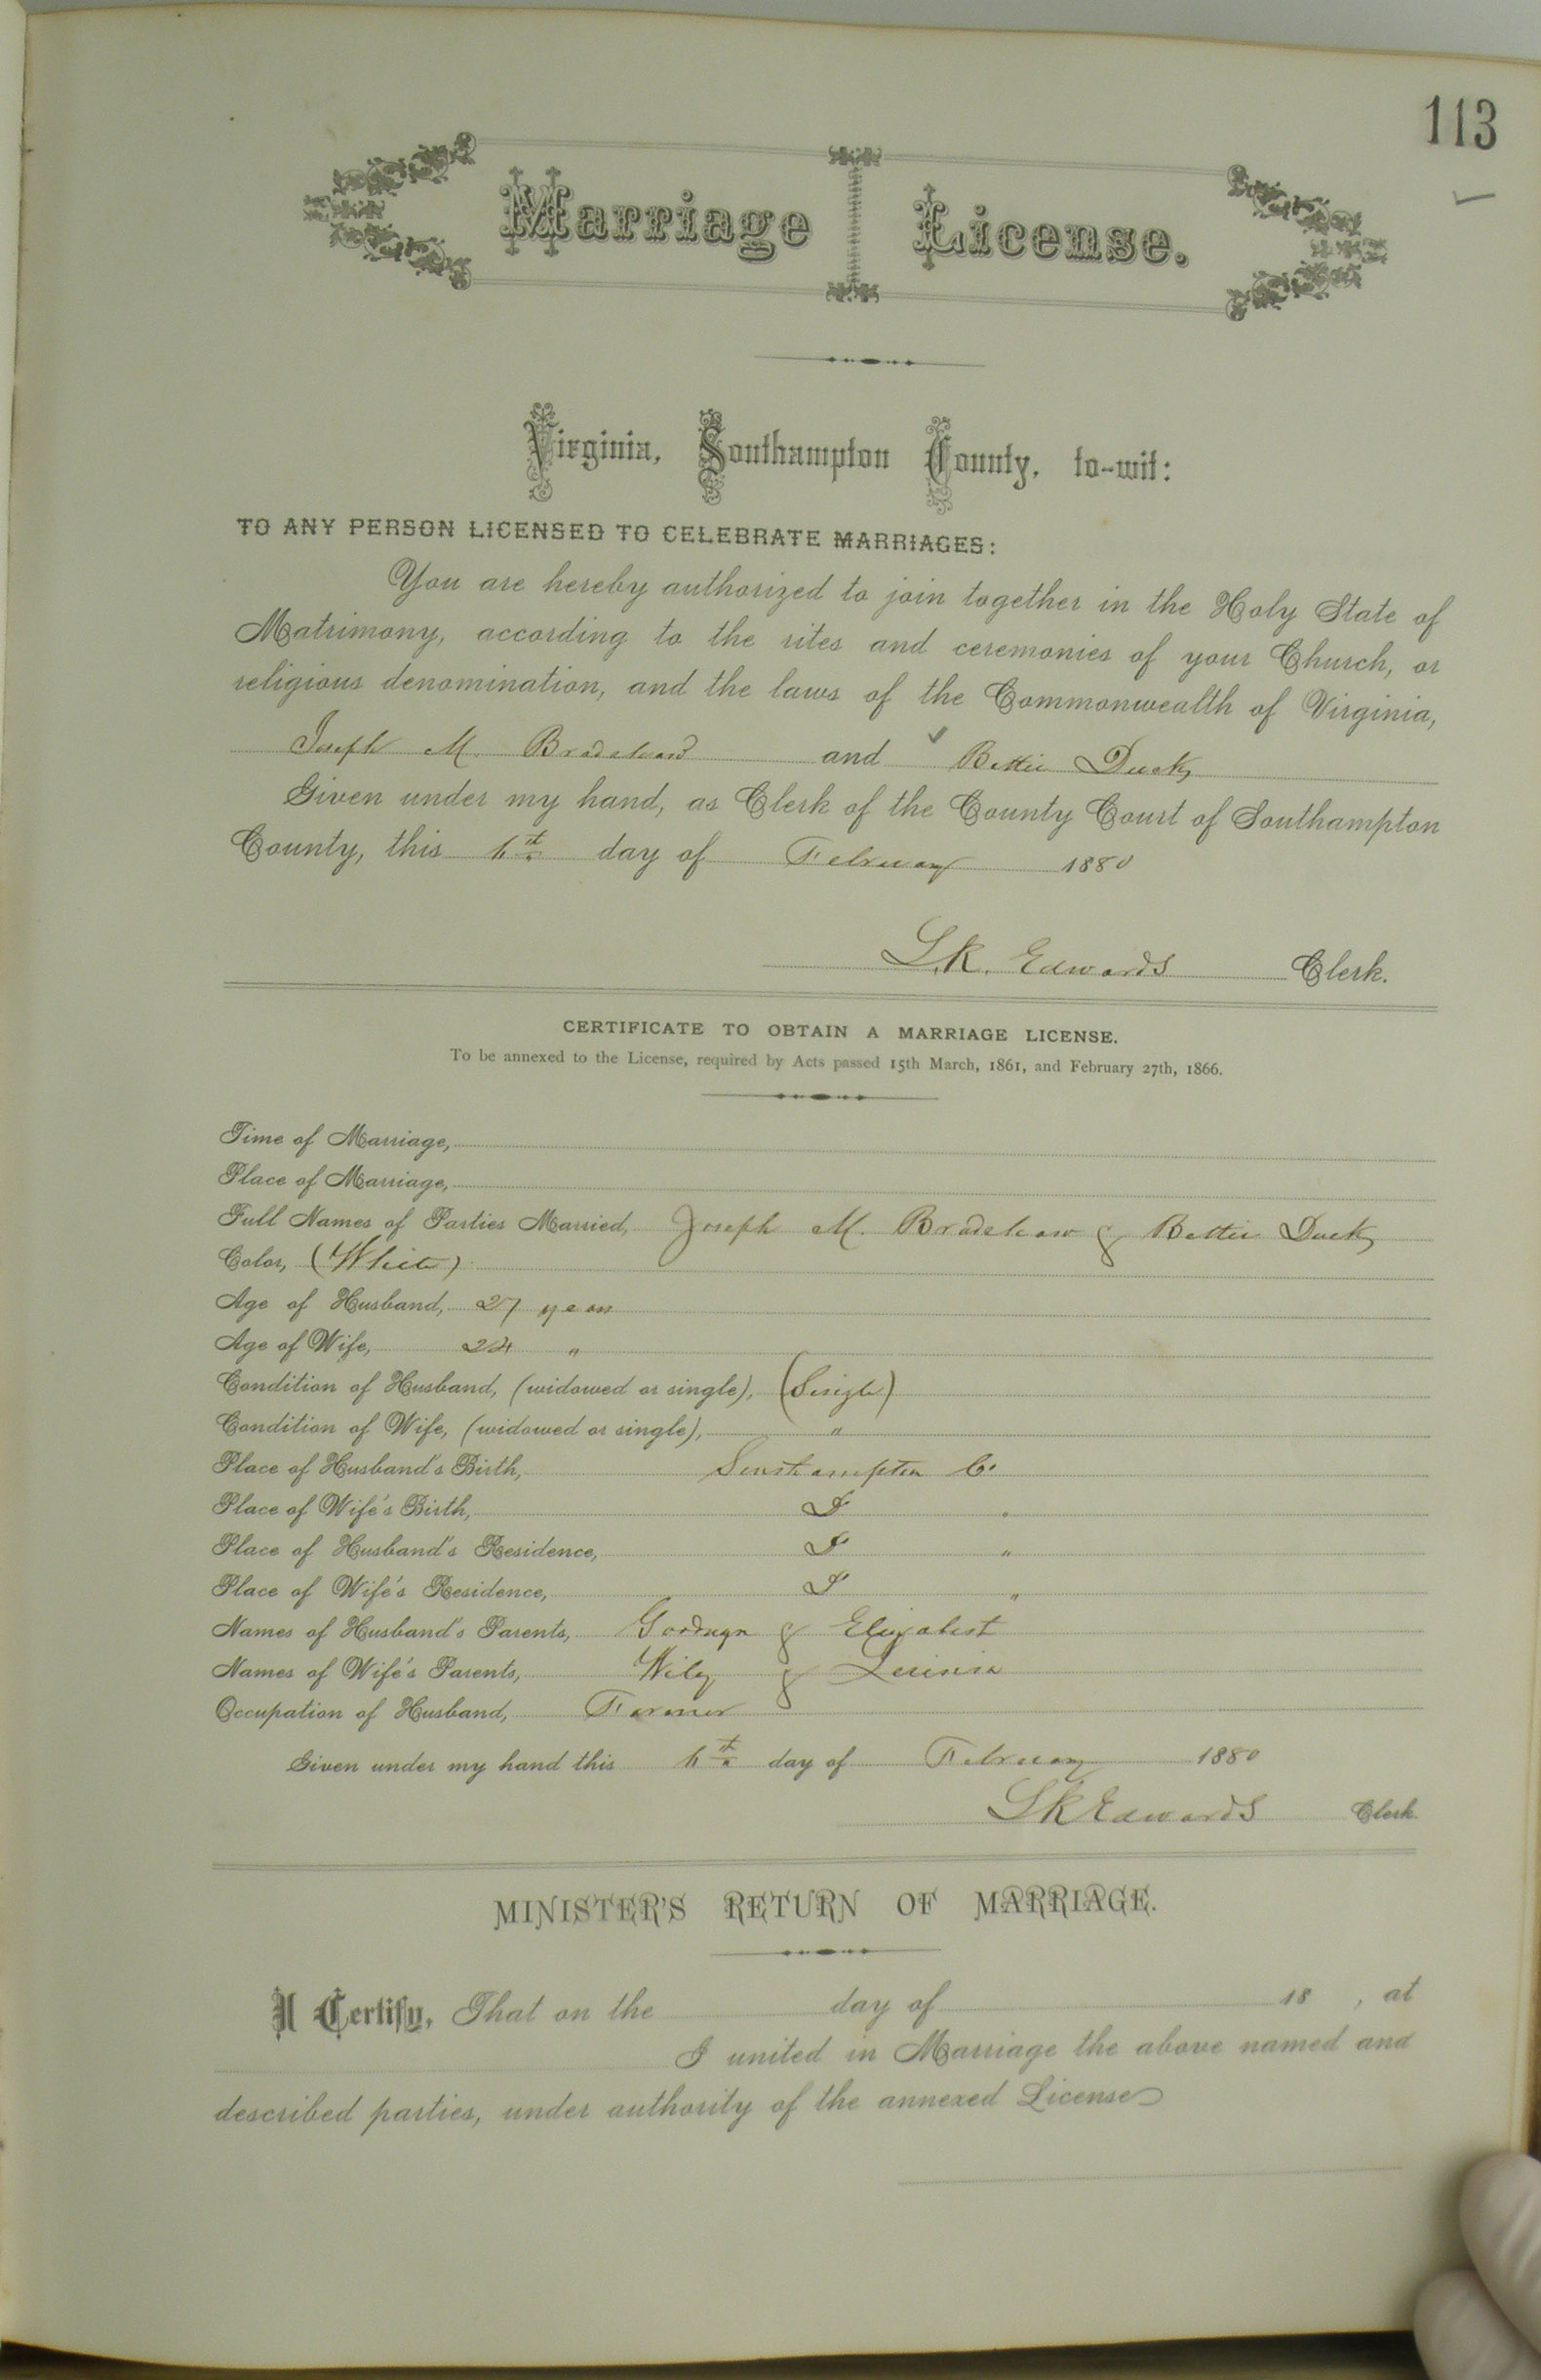 113
Marriage License.
Virginia, Southampton County, to-wit:
TO ANY PERSON LICENSED TO CELEBRATE MARRIAGES:
You are hereby authorized to join together in the Holy State of
Matrimony, according to the rites and ceremonies of your Church, or
religious denomination, and the laws of the Commonwealth of Virginia,
Joseph M. Bradshaw and Bettie Duck
Given under my hand, as Clerk of the County Court of Southampton
County, this day of February 1880
L.K. Edwards Clerk.
CERTIFICATE TO OBTAIN A MARRIAGE LICENSE.
To be annexed to the License, required by Acts passed 15th March, 1861, and February 27th, 1866.
Time of Marriage,
Place of Marriage,
Full Names of Parties Married, Joseph M. Bradshaw & Bettie Duck
Color, (White)
Age of Husband, 27 years
Age of Wife, 24 "
Condition of Husband, (widowed or single), (Single)
Condition of Wife, (widowed or single), "
Place of Husband's Birth, Southampton Co
Place of Wife's Birth, "
Place of Husband's Residence, "
Place of Wife's Residence, "
Names of Husband's Parents, & Elizabeth
Names of Wife's Parents, Wiley &
Occupation of Husband, Farmer
Given under my hand this day of February 1880
LK Edwards Clerk.
MINISTER'S RETURN OF MARRIAGE.
I Certify, That on the day of 18 , at
I united in Marriage the above named and
described parties, under authority of the annexed License